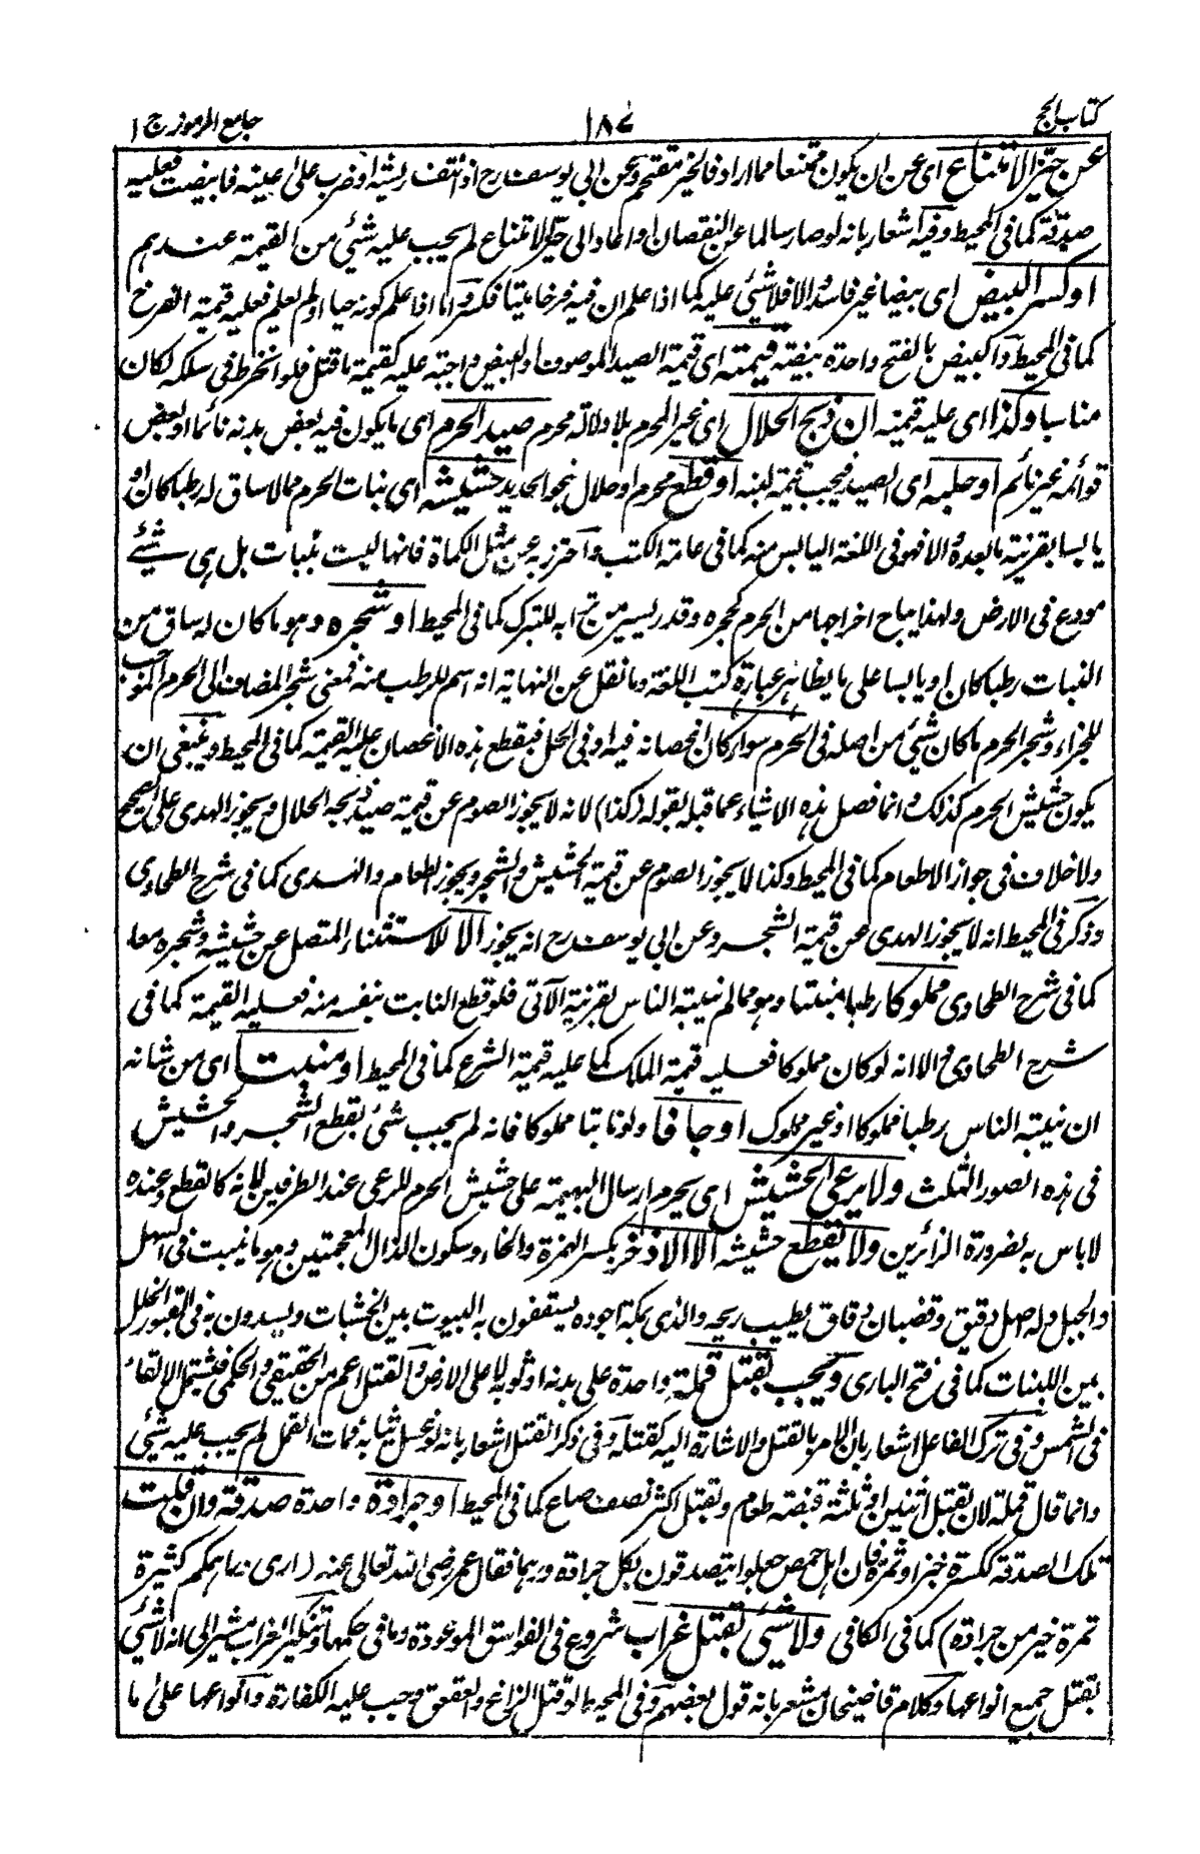 كتاب الحج
١٨٧
جامع الرموز ج ١
عن حيز الامتناع اى عن ان يكون ممتنعا مما اراد فالحيز مقحم وعن ابى يوسف رح اذا نتف ريشه او ضرب على عينه فابيضت فعليه
صدقة كما فى المحيط وفيه اشعار بانه لو صار سالما عن النقصان او العاد الى حيز الامتناع لم يجب عليه شئ من القيمة عندهم
او كسر البيض اى بيضا غير فاسد والا فلا شئ عليه كما اذا علم ان فيه فرخا ميتا فكسره اما اذا علم كونه حيا او لم يعلم فعليه قيمة الفرخ
كما فى المحيط والبيض بالفتح واحدة بيضة قيمته اى قيمة الصيد الموصوف او البيض واجبة عليه كقيمة ما قتل فلو انخرط فى سلكه لكان
مناسبا وكذا اى عليه قيمته ان ذبح الحلال اى غير المحرم بلا دلالة محرم صيد الحرم اى ما يكون فيه بعض بدنه نائما او بعض
قوائمه غير نائم او حلبه اى الصيد فيجب قيمة لبنه او قطع محرم او حلال بنحو الحديد حشيشه اى نبات الحرم مما لا ساق له رطبا كان او
يابسا بقرينة ما بعده والا فهو فى اللغة اليابس منه كما فى عامة الكتب واحترز به عن مثل الكماة فانها ليست بنبات بل هى شئ
مودع فى الارض ولهذا يباح اخراجها من الحرم كحجره وقدر يسير من ترابه للتبرك كما فى المحيط او شجره وهو ما كان له ساق من
النبات رطبا كان او يابسا على ما يظاهر عبارة كتب اللغة وما نقل عن النهاية انه اسم للرطب منه فمعنى شجر المضاف الى الحرم الموجب
للجزاء وشجر الحرم ما كان شئ من اصله فى الحرم سواء كان اغصانه فيه او فى الحل فبقطع هذه الاغصان عليه القيمة كما فى المحيط وينبغى ان
يكون حشيش الحرم كذلك وانما فصل هذه الاشياء عما قبله بقوله (كذا) لانه لا يجوز الصوم عن قيمة صيد ذبحه الحلال ويجوز الهدى على الصحيح
ولا خلاف فى جواز الاطعام كما فى المحيط وكذا لا يجوز الصوم عن قيمة الحشيش والشجر ويجوز الطعام والهدى كما فى شرح الطحاوى
وذكر فى المحيط انه لا يجوز الهدى عن قيمة الشجر وعن ابى يوسف رح انه يجوز الا للاستثناء المتصل عن حشيشه وشجره معا
كما فى شرح الطحاوى مملوكا رطبا منبتا وهو مما لم ينبته الناس بقرينة الآتى فلو قطع النابت بنفسه منه فعليه القيمة كما فى
شرح الطحاوى والا انه لو كان مملوكا فعليه قيمة الملك كما عليه قيمة الشرع كما فى المحيط او منبتا اى من شانه
ان ينبته الناس رطبا مملوكا او غير مملوك او جافا ولو نابتا مملوكا فانه لم يجب شئ بقطع الشجر والحشيش
فى هذه الصور الثلث ولا يرعى الحشيش اى يحرم ارسال البهيمة على حشيش الحرم للرعى عند الطرفين لانه كالقطع وعنده
لا باس به لضرورة الزائرين ولا يقطع حشيشه الا الاذخر بكسر الهمزة والخاء وسكون الذال المعجمتين وهو ما ينبت فى السهل
والجبل وله اصل دقيق وقضبان دقاق يطيب ريحه والذى بمكة اجوده يسقفون به البيوت بين الخشبات ويسدون به فى القبور الخلل
بين اللبنات كما فى فتح البارى ويجب بقتل قملة واحدة على بدنه او ثوبه لا على الارض والقتل اعم من الحقيقى والحكمى فيشتمل الالقاء
فى الشمس وفى ترك الفاعل اشعار بان الامر بالقتل والاشارة اليه كقتله وفى ذكر القتل اشعار بانه لو غسل ثيابه فمات القمل لم يجب عليه شئ
وانما قال قملة لان بقتل اثنين او ثلثة قبضة طعام وبقتل اكثر نصف صاع كما فى المحيط او جرادة واحدة صدقة وان قلت
تلك الصدقة ككسرة خبز او تمرة فان اهل حمص جعلوا يتصدقون بكل جرادة درهما فقال عمر رضى الله تعالى عنه (ارى دراهمكم كثيرة
تمرة خير من جرادة) كما فى الكافى ولا شئ بقتل غراب شروع فى الفواسق الموعودة وما فى حكمها وتنكير الغراب مشير الى انه لا شئ
بقتل جميع انواعها وكلام قاضيخان مشعر بانه قول بعضهم وفى المحيط لو قتل الزاغ والعقعق وجب عليه الكفارة وانواعها على ما